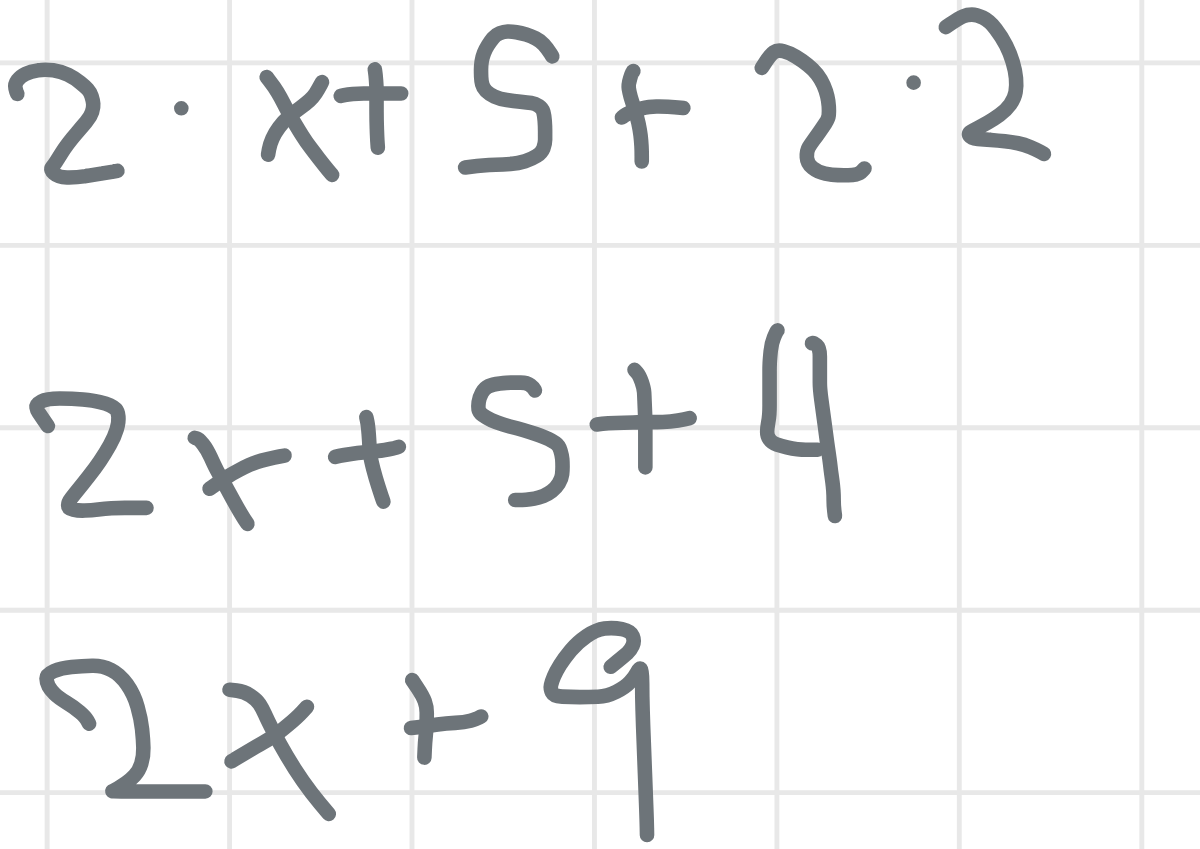 2 · x + 5 + 2 · 2
2x + 5 + 4
2x + 9